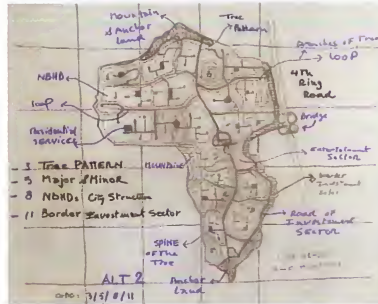 Mountain
& Anchor
Land
Tree
Pattern
Branches of Tree
LOOP
4th
Ring
Road
NBHD
LOOP
Bridge
Residential
SERVICES
Entertainment
SECTOR
- 3 Tree PATTERN
- 5 Major & Minor
- 8 NBHDs City Structure
- 11 Border Investment Sector
Road of
Investment
SECTOR
SPINE
of The
Tree
ALT 2
Anchor
Land
CODE: 3/5/8/11